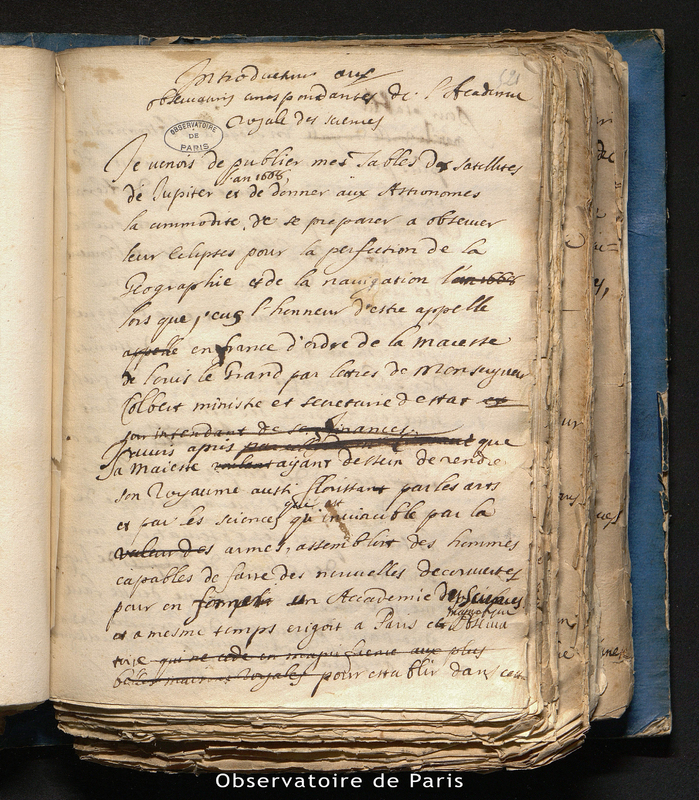 Introduction aux
observations correspondantes de l'Academie
Royale des sciences
621
OBSERVATOIRE
DE
PARIS
Je venois de publier mes Tables des satellites
l'an 1668,
de Jupiter et de donner aux Astronomes
la commodité de se preparer a observer
leur Eclipses pour la perfection de la
Geographie et de la navigation l'an 1668
lors que j'eus l'honneur d'estre appelle
appellé en france d'ordre de la maiesté
de Louis le Grand par letres de Monseigneur
Colbert ministre et secretaire d'estat et
sur intendant de ses finances.
J'avois apris que
sa Maieste voulant ayant dessein de rendre
son Royaume aussi florissant par les arts
et par les sciences qu'invincible par la
qui est
valeur des armes, assembloit des hommes
capables de faire des nouvelles decouvertes
pour en former un Accademie des sciences
et a mesme temps erigoit a Paris observa
magnifique
toire qui ne cede en magnificence aux plus
belles maisons royales pour establir dans
Observatoire de Paris